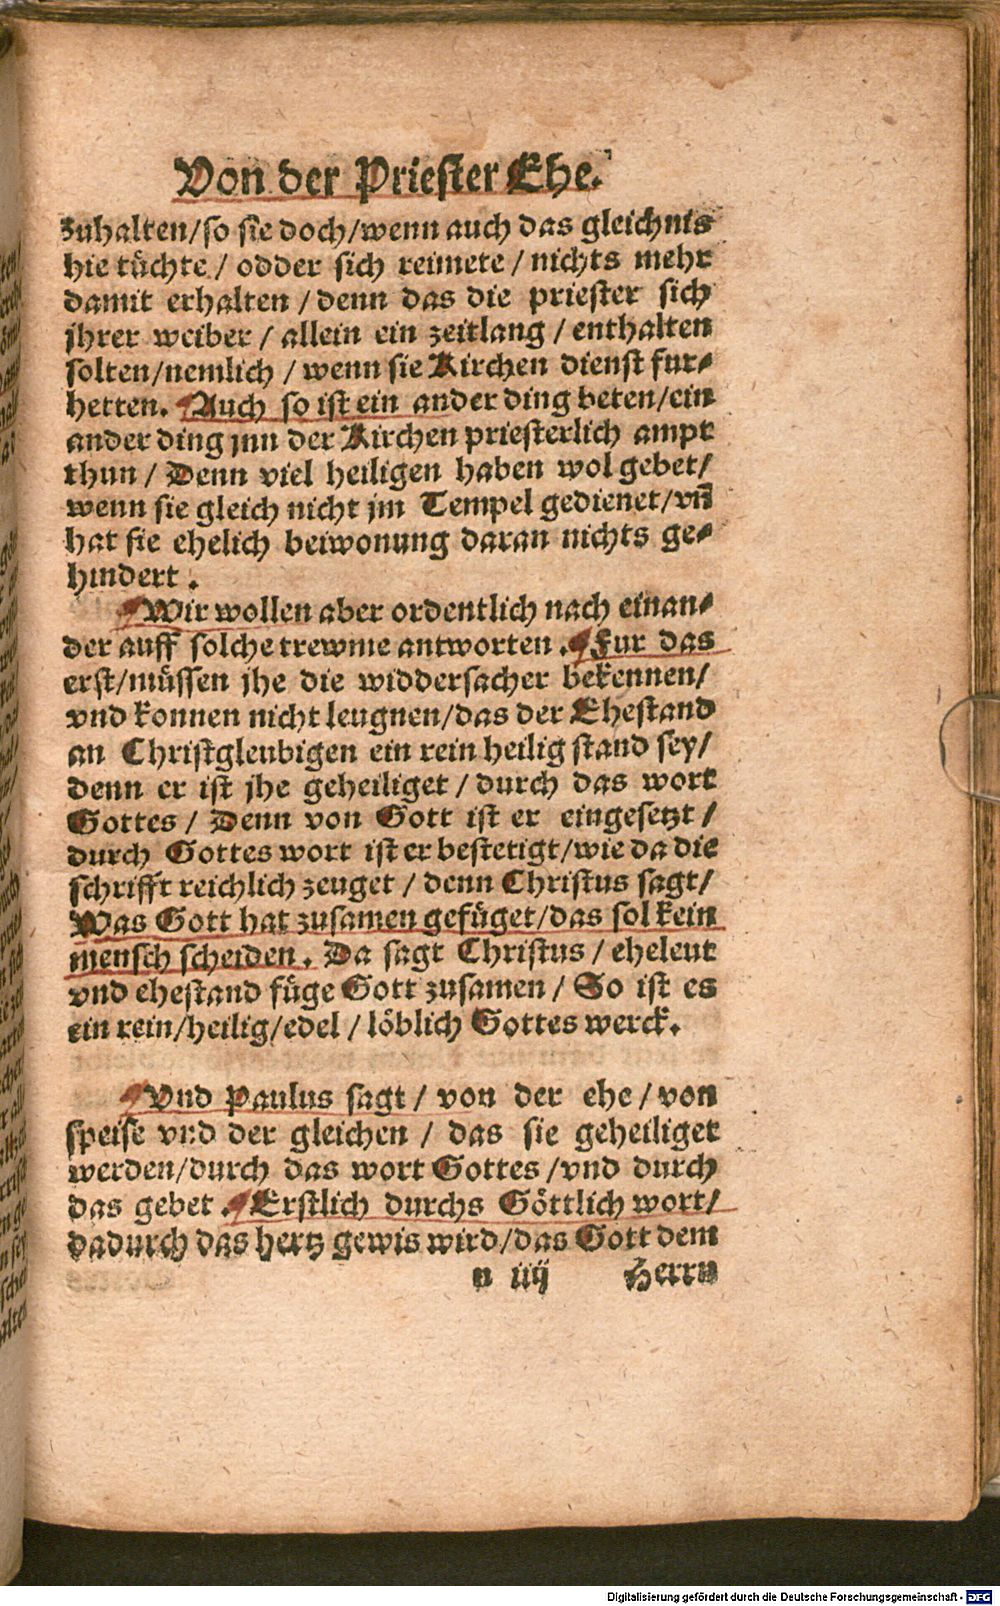 Von der Priester Ehe.
zuhalten/so sie doch/wenn auch das gleichnis
hie tüchte / odder sich reimete / nichts mehr
damit erhalten / denn das die priester sich
jhrer weiber / allein ein zeitlang / enthalten
solten/nemlich / wenn sie Kirchen dienst fur-
hetten. Auch so ist ein ander ding beten/ein
ander ding jnn der Kirchen priesterlich ampt
thun / Denn viel heiligen haben wol gebet/
wenn sie gleich nicht jm Tempel gedienet/vñ
hat sie ehelich beiwonung daran nichts ge-
hindert.
Wir wollen aber ordentlich nach einan-
der auff solche trewme antworten. Fur das
erst/müssen jhe die widdersacher bekennen/
vnd konnen nicht leugnen/das der Ehestand
an Christgleubigen ein rein heilig stand sey/
denn er ist jhe geheiliget / durch das wort
Gottes / Denn von Gott ist er eingesetzt /
durch Gottes wort ist er bestetigt/wie da die
schrifft reichlich zeuget / denn Christus sagt/
Was Gott hat zusamen gefüget/das sol kein
mensch scheiden. Da sagt Christus / eheleut
vnd ehestand füge Gott zusamen / So ist es
ein rein/heilig/edel / löblich Gottes werck.
Vnd Paulus sagt / von der ehe / von
speise vnd der gleichen / das sie geheiliget
werden/durch das wort Gottes /vnd durch
das gebet. Erstlich durchs Göttlich wort/
dadurch das hertz gewis wird/das Gott dem
n iiij Herrn
Digitalisierung gefördert durch die Deutsche Forschungsgemeinschaft - DFG